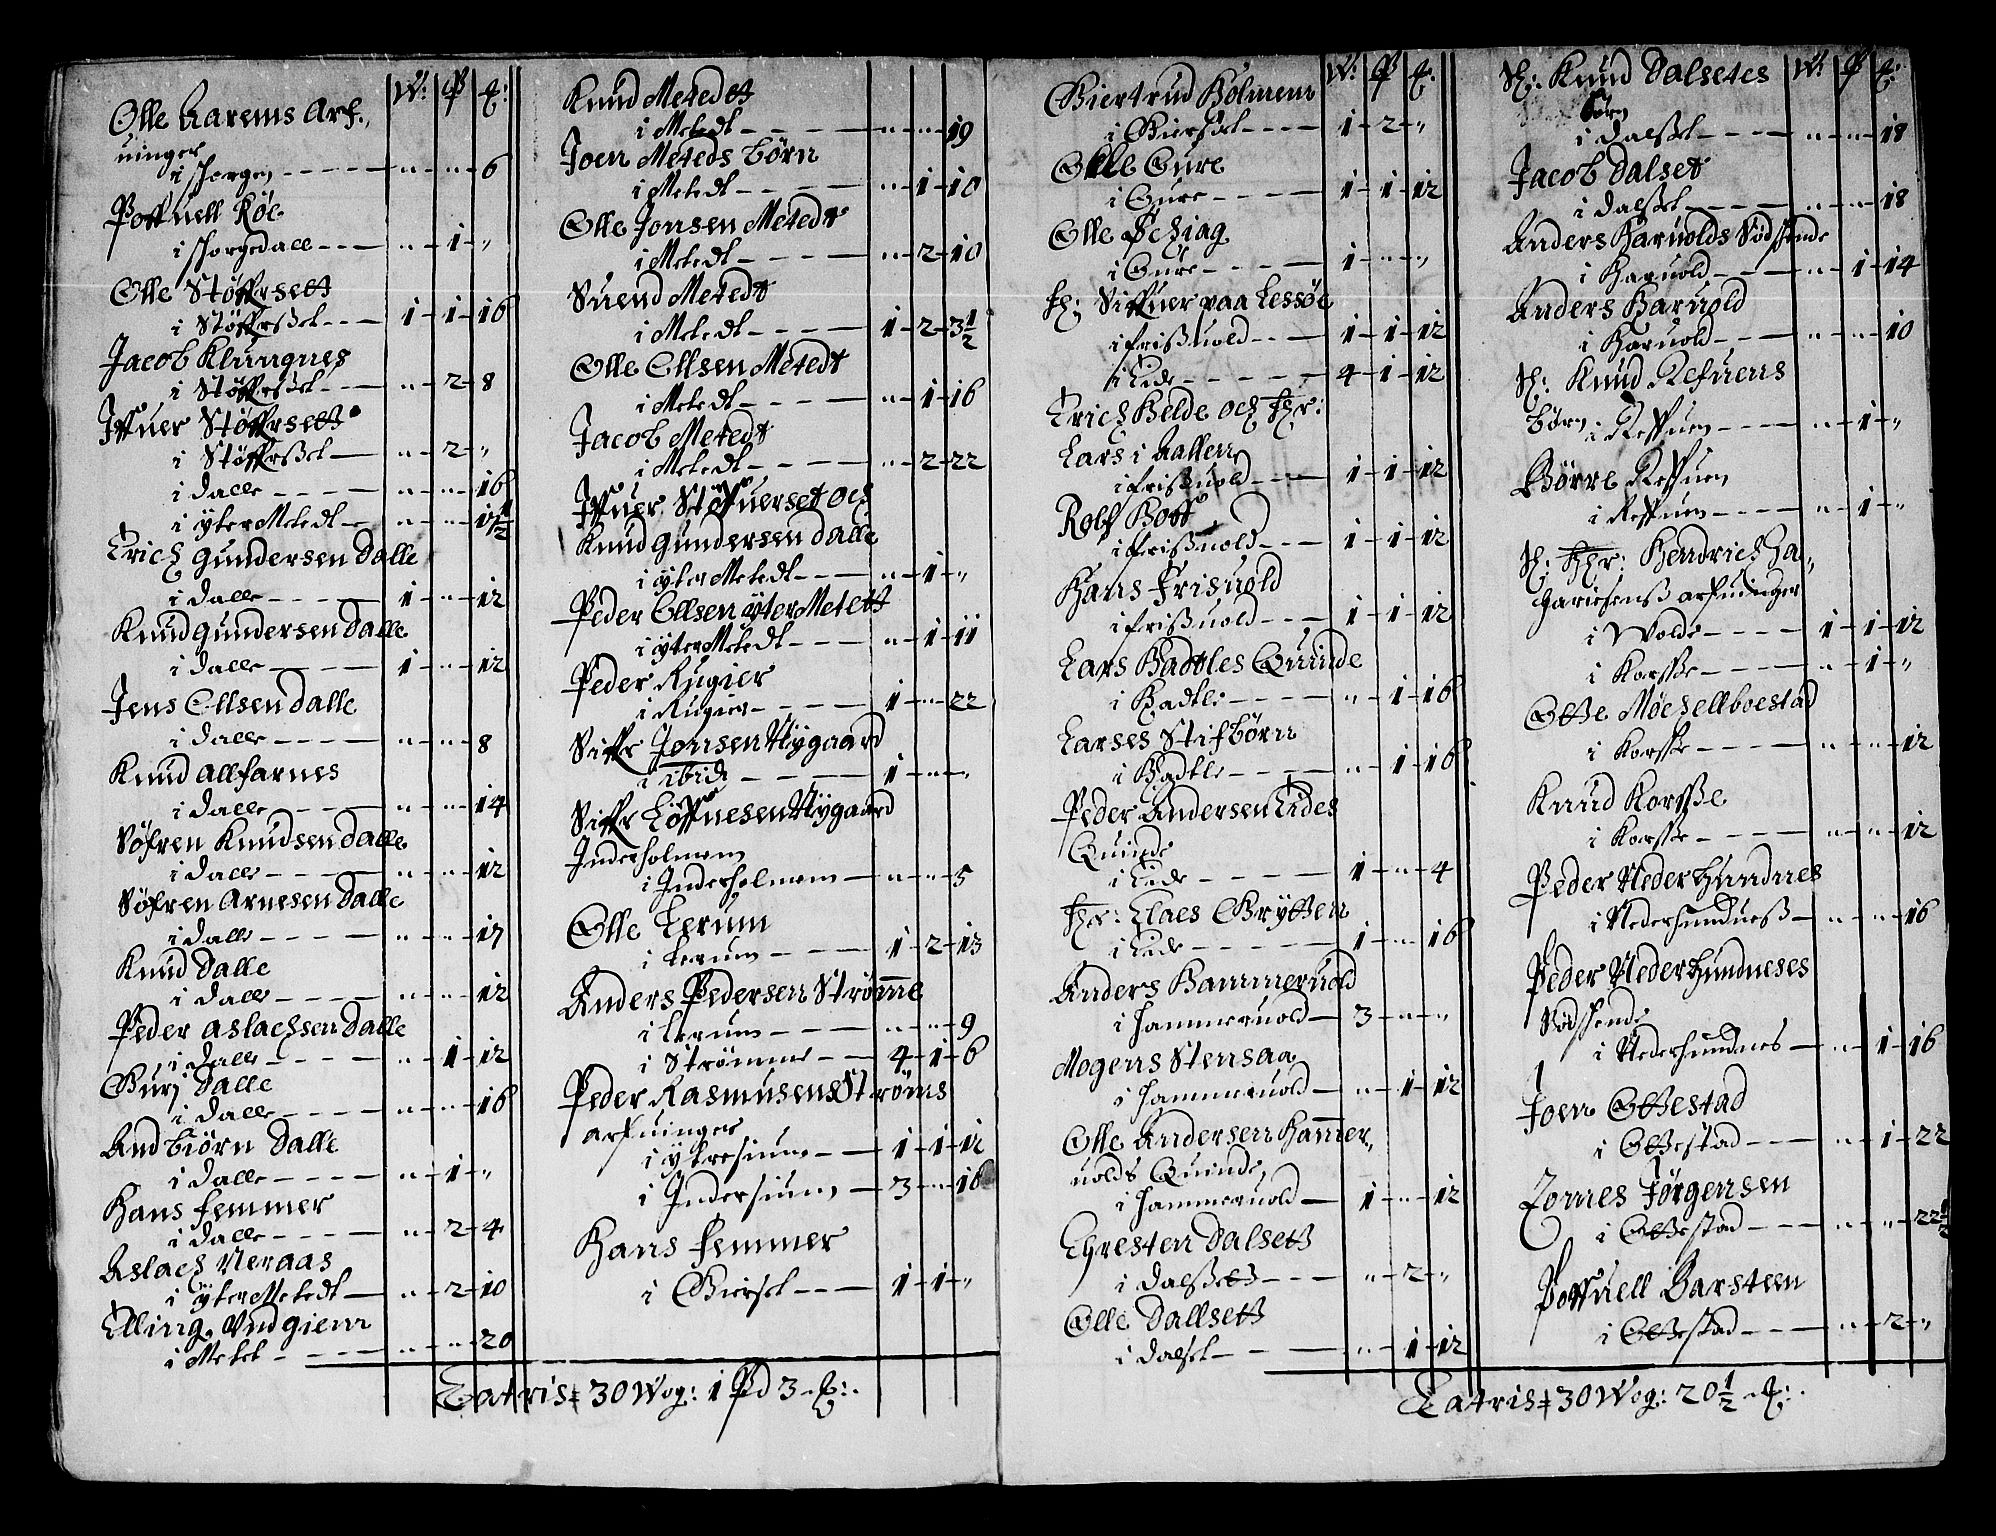 W: P ℔:
Olle Aarems Arf„
uinger
i Torgen ----- „ - „ - 6
Poffuell Röe
i Torgedall --- „ - 1 - „
Olle Störsett
i Störsset --- 1 - 1 - 16
Jacob Klungnes
i Störsset --- „ - 2 - 8
Iffuer Störsett
i Störsset -- „ - 2 - „
i Dalle ---- „ - „ - 16
i ÿter Metedt - „ - „ - 17½
Erich Gundersen Dalle
i Dalle ----- 1 - „ - 12
Knud Gundersen Dalle
i Dalle ---- 1 - „ - 12
Jens Ellsen Dalle
i Dalle ---- „ - „ - 8
Knud Allfarnes
i Dalle ---- „ - „ - 14
Söfren Knudsen Dalle
i Dalle ---- „ - „ - 12
Söfren Arnesen Dalle
i Dalle ---- „ - „ - 17
Knud Dalle
i Dalle ---- „ - „ - 12
Peder Aslachsen Dalle
i Dalle ---- „ - 1 - 12
Gurj Dalle
i Dalle ---- „ - „ - 16
Andbiörn Dalle
i Dalle ---- „ - 1 - „
Hans Femmer
i Dalle ---- „ - 2 - 4
Aslach Neraas
i ÿter Metedt - „ - 2 - 10
Elling Vndgiem
i Metet ---- „ - „ - 20
Knud Metedtt
i Metedt ---- „ - „ - 19
Joen Meteds börn
i Metedt ---- „ - 1 - 10
Olle Jonsen Metedt
i Metedt ---- „ - 2 - 10
Suend Metedt
i Metedt ---- 1 - 2 - 3½
Olle Ellsen Metedt
i Metedt ---- „ - 1 - 16
Jacob Metedt
i Metedt ---- „ - 2 - 22
Iffuer Störuerset och
Knud Gundersen Dalle
i ÿter Metedt --- „ - 1 - „
Peder Ellsen ÿter Metett
i ÿter Metedt --- „ - 1 - 11
Peder Rugier
i Rugier ---- 1 - „ - 22
Siffr Jonsen Nÿgaard
i ibid ---- 1 - „ - „
Siffr Löffuesen Nÿgaard
Inderholmem
i Inderholmem -- „ - „ - 5
Olle Lerum
i Lerum ---- 1 - 2 - 13
Anders Pedersen Strömme
i Lerum ---- „ - „ - 9
i Strömme -- 4 - 1 - 6
Peder Rasmusens Ströms
arfuinger
i ÿtresium -- 1 - 1 - 12
i Indersium - 3 - „ - 16
Hans Femmer
i Gierset --- 1 - 1 - „
Latris 30 Wog: 1 Pd 3 ℔:
W: P ℔:
Giertrud Holmem
i Gierset ---- 1 - 2 - „
Olle Gure
i Gure ---- 1 - 1 - 12
Olle Schiag
i Gure ---- 1 - „ - „
Hr: Siffuer paa Lessöe
i Frissuold --- 1 - 1 - 12
i Eide ---- 4 - 1 - 12
Erich Helde och Hr:
Lars i Aallen
i Frissuold --- 1 - 1 - 12
Rolf Bott
i Frissuold --- 1 - 1 - 12
Hans Frisuold
i Frissuold --- 1 - 1 - 12
Lars Hadtles Quinde
i Hadtle ---- „ - 1 - 16
Larses Stifbörn
i Hadtle ---- „ - 1 - 16
Peder Andersen Eides
Quinde
i Eide ---- 1 - „ - 4
Hr: Claes Grÿtten
i Eide ----- 1 - „ - 16
Anders Hammeruold
i Hammeruold - 3 - „ - „
Mogens Stensaa
i Hammeruold - „ - 1 - 12
Olle Andersen Hamer„
uolds Quinde
i Hammeruold - 1 - „ - 12
Chresten Dalsett
i Dalssett --- „ - 2 - „
Olle Dallsett
i Dalset ---- „ - 1 - 12
W: P ℔:
S: Knud Dalsetes
Börn
i Dalsset ---- „ - „ - 18
Jacob Dalset
i Dalsset ---- „ - „ - 18
Anders Haruolds Södskende
i Haruold --- „ - 1 - 14
Anders Haruold
i Haruold ---- „ - „ - 10
S: Knud Refuens
börn i Reffuen ---- „ - 1 - „
Börre Reffuen
i Reffuen ---- „ - 1 - „
S: Hr: Hendrich Za„
chariesens arfuinger
i Wolde ---- 1 - 1 - 12
i Korsse ---- „ - 1 - „
Otte Möchellboestad
i Korsse ---- „ - „ - 12
Knud Korsse
i Korsse ---- „ - „ - 12
Peder Nederhundnes
i Nederhundness - „ - „ - 16
Peder Nederhundneses
Södskende
i Nederhundnes - „ - 1 - 16
Joen Ottestad
i Ottestad --- „ - 1 - 22
Tomes Jörgensen
i Ottestad --- „ - „ - 22½
Poffuell Barsteen
i Ottestad --- „ - 2 - „
Latris 30 Wog: 20½ ℔: